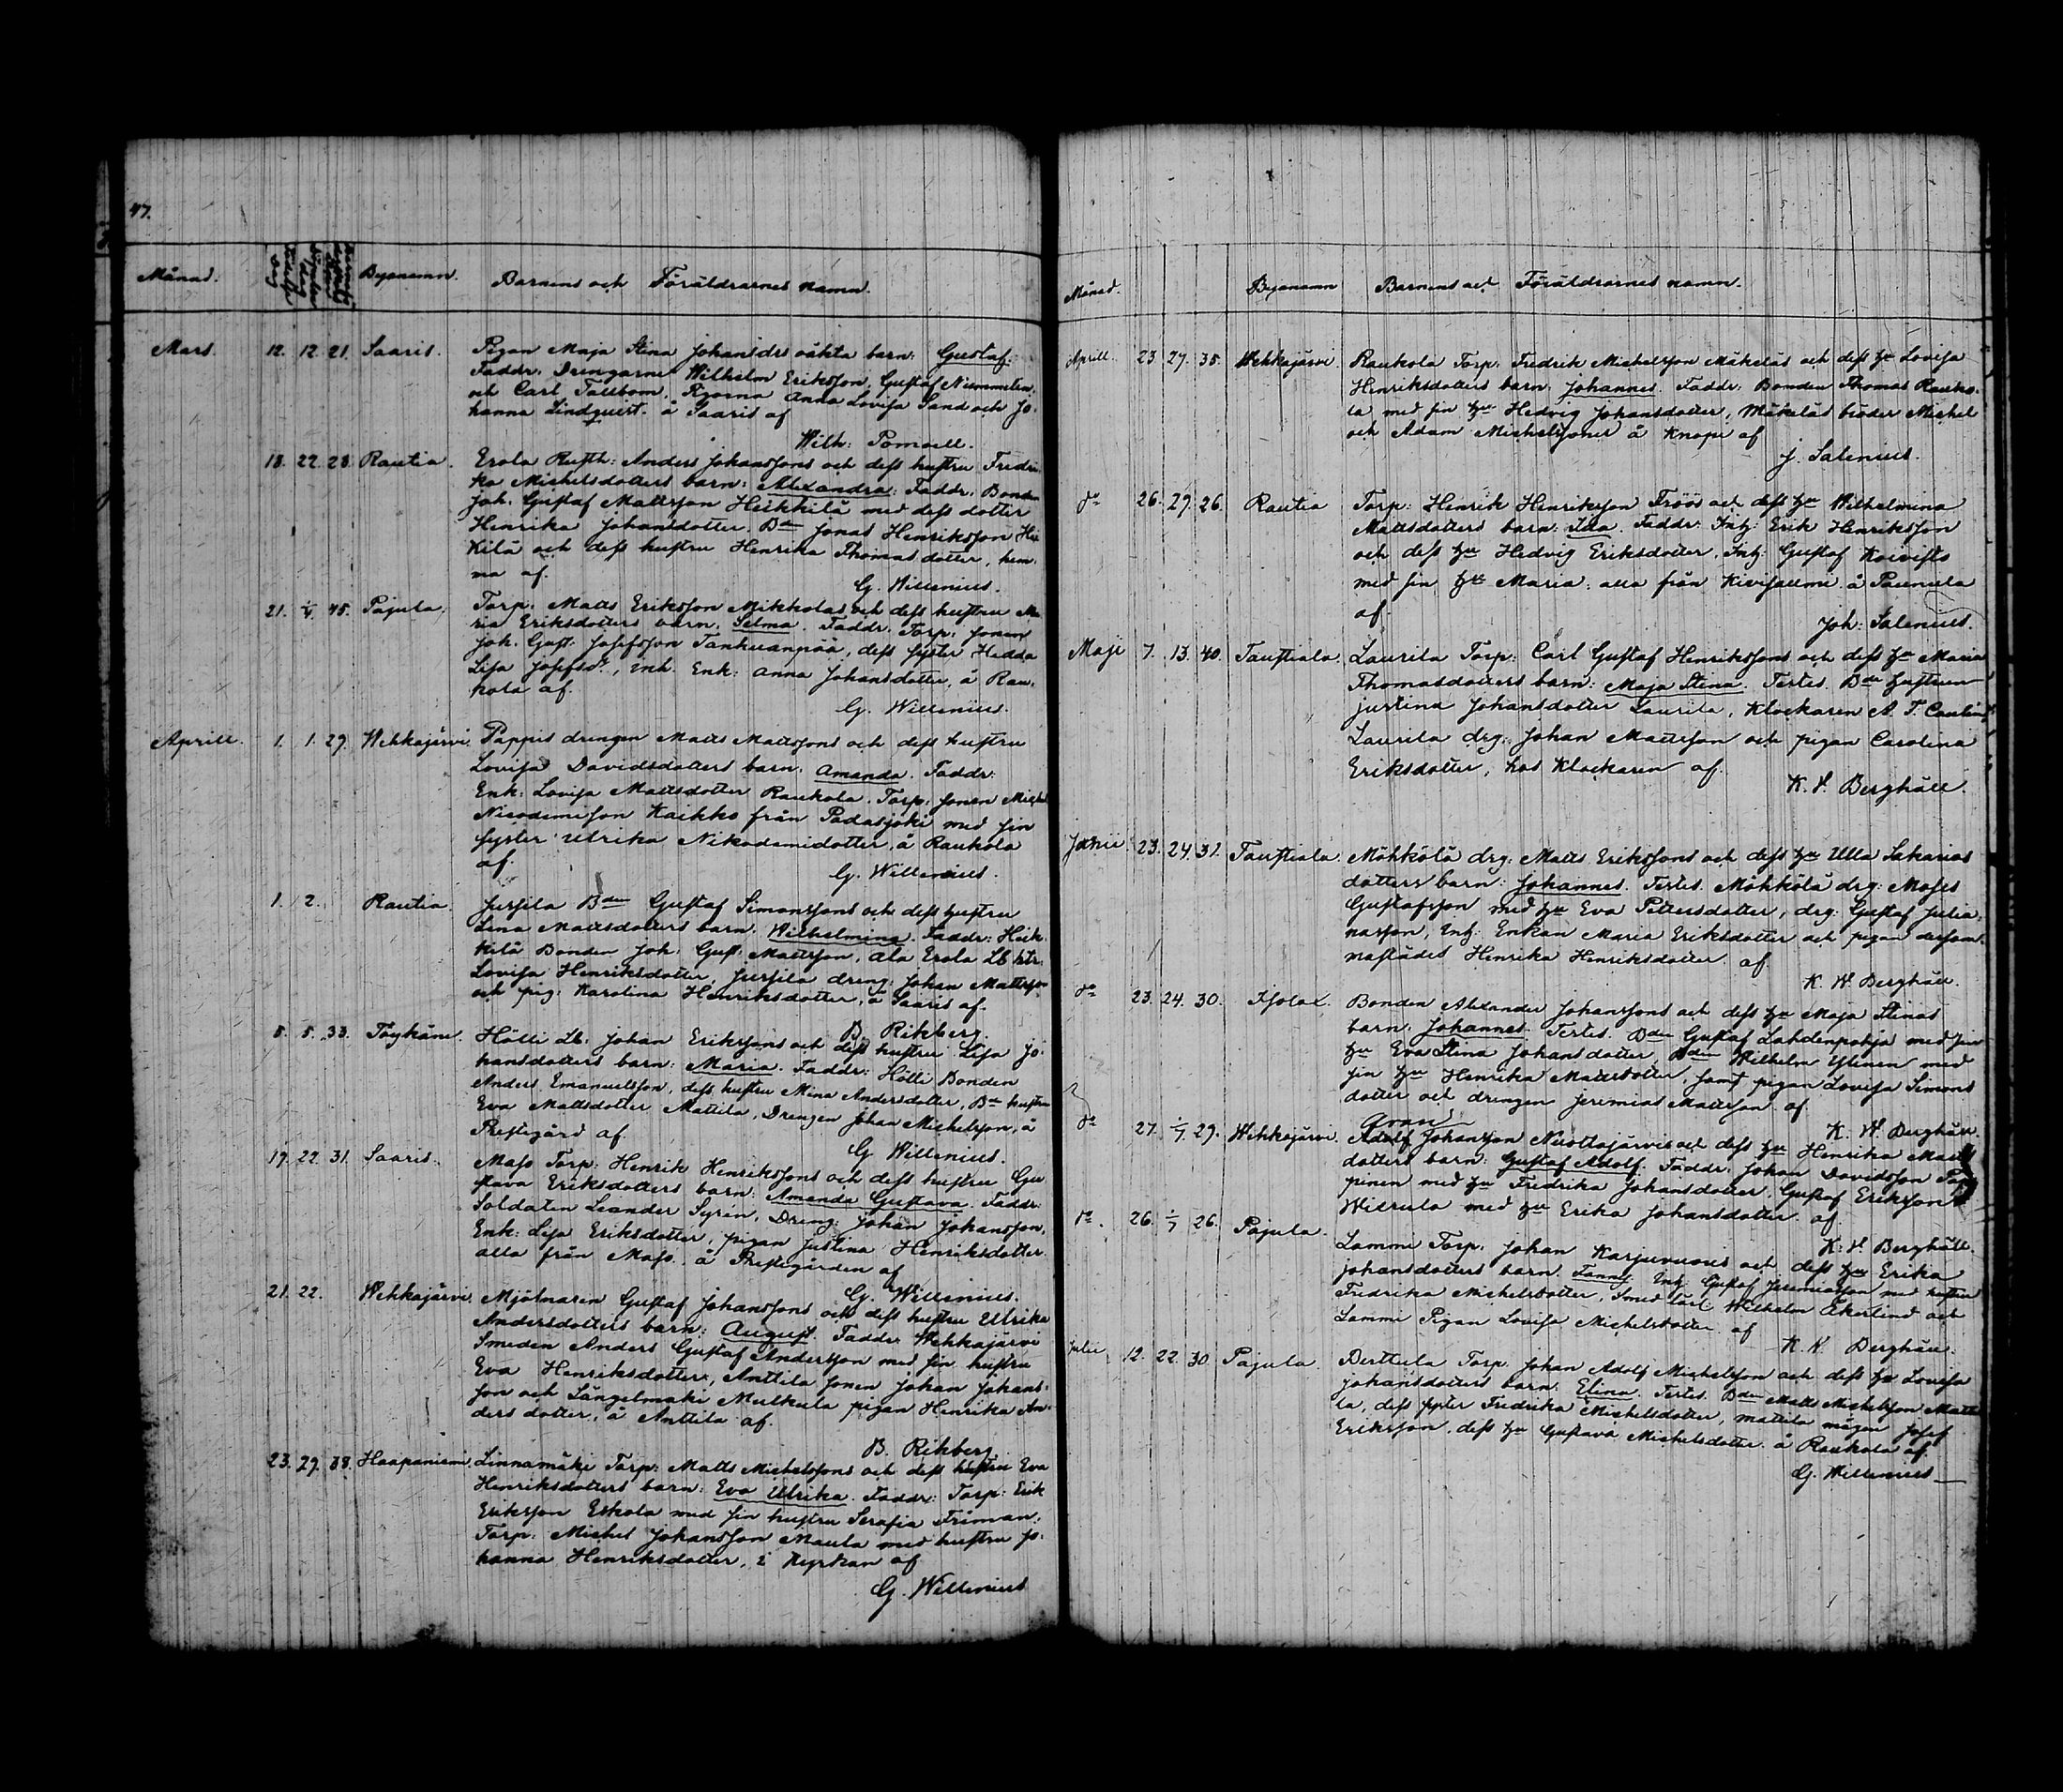 47.
Månad. Byanamn. Barnens och Föräldrarnes namn.
Mars. 12. 12. 21. Saaris. Pigan Maja Stina Johansdrs oäkta barn: Gustaf.
Faddr. Drengarne Wilhelm Eriksson, Gustaf Nummelin,
och Carl Tallbom, Pigorna Anna Lovisa Sand och Jo-
hanna Lindquist. å Saaris af
Wilh: Pomoell.
18. 22. 28. Rautia. Erola Rusth: Anders Johanssons och dess hustru Fredri-
ka Michelsdotters barn: Alexandra: Faddr: Bonden
Joh. Gustaf Mattsson Heikkilä med dess dotter
Henrika Johansdotter. Bdn Jonas Henriksson Hei
kilä och dess hustru Henrika Thomasdotter, hem-
ma af.
G. Willenius.
21. 1/4 45. Pajula. Torp. Matts Eriksson Mikkolas och dess hustru Ma-
ria Eriksdotters barn. Selma. Faddr. Torp: sonen
Joh. Gust: Josefsson Tanhuanpää, dess syster Hedda
Lisa Josefsdr, Enk: Anna Johansdotter, å Rau-
kola af.
G. Willenius.
Aprill. 1. 1. 29. Wehkajärvi. Pappis drengen Matts Mattssons och dess hustru
Lovisa Davidsdotters barn. Amanda. Faddr:
Enk: Lovisa Mattsdotter Raukola. Torp: sonen Michel
Nicodemisson Kaikko från Padasjoki med sin
syster Ulrika Nikodemidotter, å Raukola
af.
G. Willenius.
1. 2. Rautia. Jussila Bdn Gustaf Simonssons och dess hustru
Lina Mattsdotters barn. Wilhelmina. Faddr: Heik-
kilä Bonden Joh. Gust: Mattsson, Ala Erola Lb. htr:
Lovisa Henriksdotter Jussila dreng: Johan Mattsson
och pig: Karolina Henriksdotter, å Saaris af.
B. Rikberg.
5. 5. 33. Töykäne. Hölli Lb. Johan Erikssons och dess hustru Lisa Jo-
hansdotters barn: Maria. Faddr: Hölli Bonden
Anders Emanuelsson, dess hustru Mina Andersdotter, Bdn hustru
Eva Mattsdotter Mattila, Drengen Johan Michelsson, å
Prestegård af.
G. Willenius.
19. 22. 31. Saaris. Mass Torp: Henrik Henrikssons och dess hustru Gu
stava Eriksdotters barn: Amanda Gustava. Faddr:
Soldaten Leander Syrén, Dreng: Johan Johansson,
Enk: Lisa Eriksdotter, pigan Justina Henriksdotter
alla från Mass. å Prestegården af
G. Willenius.
21. 22. Wehkajärvi. Mjölnaren Gustaf Johanssons och dess hustru Ulrika
Andersdotters barn: August. Faddr: Wehkajärvi
Smeden Anders Gustaf Andersson med sin hustru
Eva Henriksdotter, Anttila sonen Johan Johans-
son och Längelmäki Mulkula pigan Henrika An-
ders dotter, å Anttila af.
B. Rikberg
23. 29. 38. Haapaniemi. Linnamäki Torp: Matts Michelssons och dess hustru Eva
Henriksdotters barn: Eva Ulrika. Faddr: Torp: Erik
Eriksson Eskola med sin hustru Serafia Friman,
Torp: Michel Johansson Maula med hustru Jo-
hanna Henriksdotter, i Kyrkan af
G. Willenius
Månad. Byanamn Barnens och Föräldrarnes namn.
Aprill. 23 29. 35. Wehkajärvi. Raukola Torp: Fredrik Michelsson Mäkeläs och dess hu Lovisa
Henriksdotters barn: Johannes. Faddr: Bonden Thomas Rauko-
la med sin hu Hedvig Johansdotter, Mäkeläs bröder Michel
och Adam Michelssoner å Knopi af
J. Salenius.
do 26. 29. 26. Rautia Torp: Henrik Henriksson Fröös och dess hu Wilhelmina
Mattsdotters barn: Ida. Faddr: Inh: Erik Henriksson
och dess hu Hedvig Eriksdotter, Inh: Gustaf Koivisto
med sin hu Maria: alla från Kivisalmi. å Paunula
af.
Joh: Salenius.
Maji 7. 13. 40. Taustiala. Laurila Torp: Carl Gustaf Henrikssons och dess hu Maria
Thomasdotters barn: Maja Stina. Testes. Bdn hustrun
Justina Johansdotter Laurila, Klockaren A. F.
Laurila drg: Johan Mattsson och pigan Carolina
Eriksdotter, hos Klockaren af.
K. W. Berghäll.
Junii 23. 24. 37. Taustiala. Möhkölä drg: Matts Erikssons och dess hu Ulla Sakarias
dotters barn: Johannes. Testes. Möhkölä drg: Moses
Gustafsson med hu Eva Pettersdotter, drg: Gustaf Julia-
nasson, Inh: Enkan Maria Eriksdotter och pigan dersam-
mastädes Henrika Henriksdotter. af.
K. W. Berghäll.
do 23. 24. 30. Isolax. Bonden Alexander Johanssons och dess hu Maja Stinas
barn. Johannes. Testes. Bdn Gustaf Lahdenpohja med sin
hu Eva Stina Johansdotter, Bdn Wilhelm Ylinen med
sin hu Henrika Mattsdotter samt pigan Lovisa Simons
dotter och drengen Jeremias Mattsson af.
K. W. Berghäll.
do 27. 1/7 29. Wehkajärvi. Adolf Johansson Nuottajärvis och dess hu Henrika Matts
dotters barn: Gustaf Adolf. Faddr: Johan Davidsson Pap
pinen med hu Fredrika Johansdotter, Gustaf Eriksson
Witsula med hu Erika Johansdotter. af.
K. W. Berghäll.
do. 26. 1/7 26. Pajula. Lammi Torp: Johan Karjuvuoris och dess hu Erika
Johansdotters barn. Fanny. Inh: Gustaf Jeremiasson med hustru
Fredrika Michelsdotter, Smed Carl Wilhelm Ekerlind och
Lammi Pigan Lovisa Michelsdotter af
K. W. Berghäll.
Julii 12. 22. 30 Pajula. Perttula Torp. Johan Adolf Michelsson och dess hu Lovisa
Johansdotters barn. Elina. Testes. Bdn Matts Michelsson Matti
la, dess syster Fredrika Michelsdotter, Mattila mågen Josef
Eriksson, dess hu Gustava Michelsdotter. å Raukola af.
G. Willenius